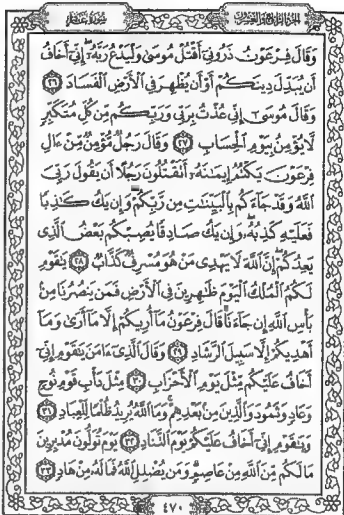 الجزء الرابع والعشرون سورة غافر
وَقَالَ فِرْعَوْنُ ذَرُونِىٓ أَقْتُلْ مُوسَىٰ وَلْيَدْعُ رَبَّهُۥٓ ۖ إِنِّىٓ أَخَافُ
أَن يُبَدِّلَ دِينَكُمْ أَوْ أَن يُظْهِرَ فِى ٱلْأَرْضِ ٱلْفَسَادَ ٢٦
وَقَالَ مُوسَىٰٓ إِنِّى عُذْتُ بِرَبِّى وَرَبِّكُم مِّن كُلِّ مُتَكَبِّرٍ
لَّا يُؤْمِنُ بِيَوْمِ ٱلْحِسَابِ ٢٧ وَقَالَ رَجُلٌ مُّؤْمِنٌ مِّنْ ءَالِ
فِرْعَوْنَ يَكْتُمُ إِيمَٰنَهُۥٓ أَتَقْتُلُونَ رَجُلًا أَن يَقُولَ رَبِّىَ
ٱللَّهُ وَقَدْ جَآءَكُم بِٱلْبَيِّنَٰتِ مِن رَّبِّكُمْ ۖ وَإِن يَكُ كَٰذِبًا
فَعَلَيْهِ كَذِبُهُۥ ۖ وَإِن يَكُ صَادِقًا يُصِبْكُم بَعْضُ ٱلَّذِى
يَعِدُكُمْ ۖ إِنَّ ٱللَّهَ لَا يَهْدِى مَنْ هُوَ مُسْرِفٌ كَذَّابٌ ٢٨ يَٰقَوْمِ
لَكُمُ ٱلْمُلْكُ ٱلْيَوْمَ ظَٰهِرِينَ فِى ٱلْأَرْضِ فَمَن يَنصُرُنَا مِنۢ
بَأْسِ ٱللَّهِ إِن جَآءَنَا ۚ قَالَ فِرْعَوْنُ مَآ أُرِيكُمْ إِلَّا مَآ أَرَىٰ وَمَآ
أَهْدِيكُمْ إِلَّا سَبِيلَ ٱلرَّشَادِ ٢٩ وَقَالَ ٱلَّذِىٓ ءَامَنَ يَٰقَوْمِ إِنِّىٓ
أَخَافُ عَلَيْكُم مِّثْلَ يَوْمِ ٱلْأَحْزَابِ ٣٠ مِثْلَ دَأْبِ قَوْمِ نُوحٍ
وَعَادٍ وَثَمُودَ وَٱلَّذِينَ مِنۢ بَعْدِهِمْ ۚ وَمَا ٱللَّهُ يُرِيدُ ظُلْمًا لِّلْعِبَادِ ٣١
وَيَٰقَوْمِ إِنِّىٓ أَخَافُ عَلَيْكُمْ يَوْمَ ٱلتَّنَادِ ٣٢ يَوْمَ تُوَلُّونَ مُدْبِرِينَ
مَا لَكُم مِّنَ ٱللَّهِ مِنْ عَاصِمٍ ۗ وَمَن يُضْلِلِ ٱللَّهُ فَمَا لَهُۥ مِنْ هَادٍ ٣٣
٤٧٠